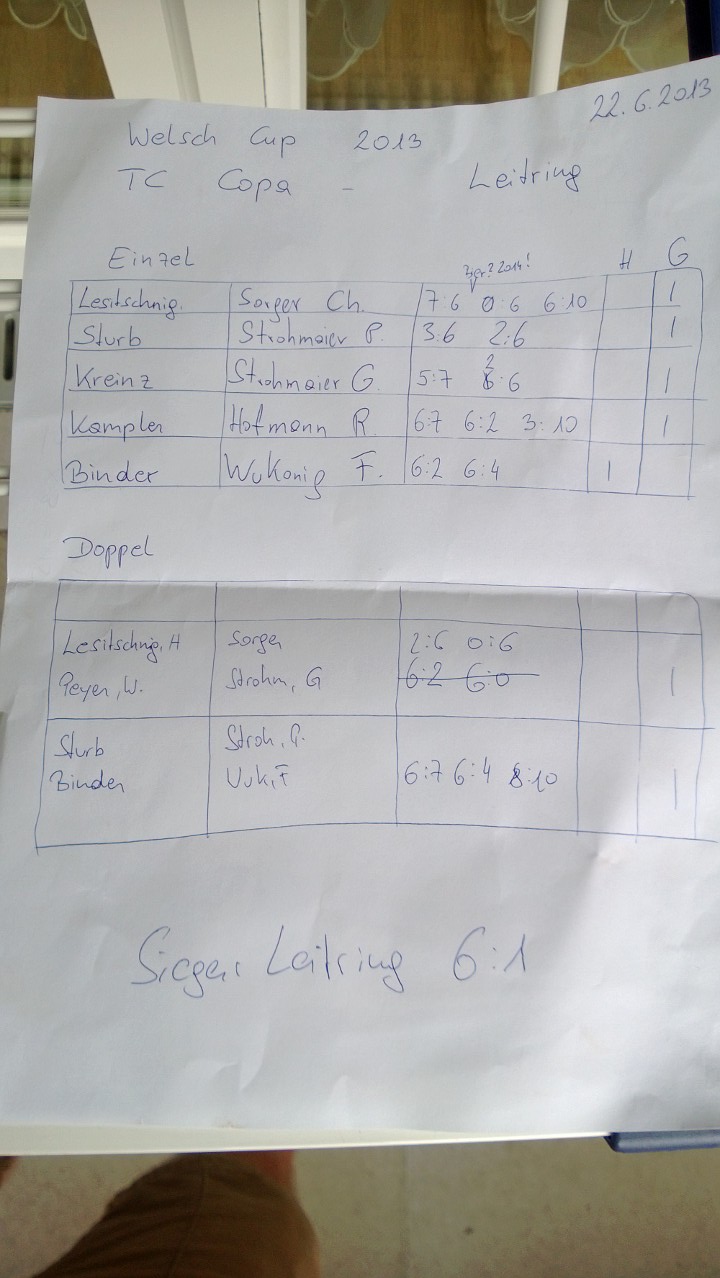 22.6.2013
Welsch Cup 2013
TC Copa - Leitring
Einzel H G
2014!
Lesitschnig. Sorger Ch. 7:6 0:6 6:10 1
Sturb Strohmaier P. 3:6 2:6 1
Kreinz Strohmaier G. 5:7 2:6 1
Kampler Hofmann R. 6:7 6:2 3:10 1
Binder Wukonig F. 6:2 6:4 1
Doppel
Lesitschnig, H Sorger 2:6 0:6
Peyer, W. Strohm, G 6:2 6:0 1
Sturb Stroh, P.
Binder Wuk, F 6:7 6:4 8:10 1
Sieger Leitring 6:1